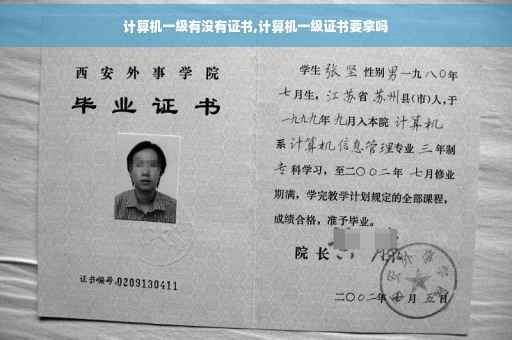 计算机一级有没有证书,计算机一级证书要拿吗
西安外事学院
毕业证书
证书编号:0209130411
学生 张坚 性别 男 一九八〇年
七月生，江苏省 苏州 县(市)人,于
一九九九年 九月入本院 计算机
系 计算机信息管理 专业 三 年制
专科学习，至二〇〇二年 七月修业
期满，学完教学计划规定的全部课程,
成绩合格，准予毕业。
院长
二〇〇二年 七月 五日